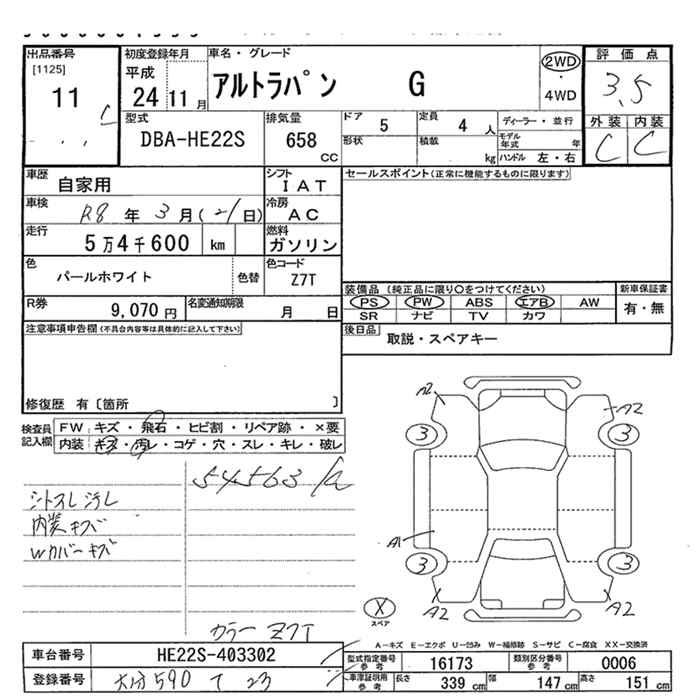 出品番号
[1125]
11
初度登録年月
平成
24 11月
車名・グレード
アルトラパン G
2WD
・
4WD
評価点
3.5
外装 内装
C C
型式
DBA-HE22S
排気量
658
CC
ドア 5
定員 4 人
形状
積載 kg
ディーラー・並行
モデル年式 年
ハンドル 左・右
車歴
自家用
シフト
IAT
セールスポイント(正常に機能するものに限ります)
車検
R8 年 3 月(21日)
冷房
AC
走行
5万4千600 km
燃料
ガソリン
色
パールホワイト
色替
色コード
Z7T
装備品 (純正品に限り○をつけてください)
PS PW ABS エアB AW
SR ナビ TV カワ
新車保証書
有・無
R券
9,070 円
名変通知期限
月 日
後日品
取説・スペアキー
注意事項申告欄(不具合内容等は具体的に記入して下さい)
修復歴 有〔箇所 〕
検査員
記入欄
FW キズ・飛石・ヒビ割・リペア跡・×要
内装 キズ・汚レ・コゲ・穴・スレ・キレ・破レ
54563
シートスレ汚レ
内装キズ
Wカバーキズ
カラー Z7T
A2
A2
3
3
A1
3
3
A2
A2
X
スペア
A-キズ E-エクボ U-凹み W-補修跡 S-サビ C-腐食 XX-交換済
車台番号
HE22S-403302
登録番号
大分590 て 23
型式指定番号
参考
16173
類別区分番号
参考
0006
車庫証明用
参考
長さ 339 cm
幅 147 cm
高さ 151 cm